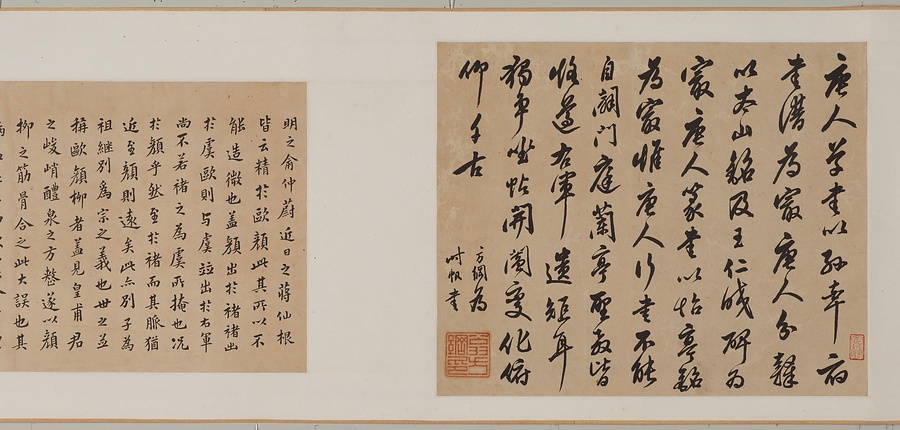 唐人草書以孫率府
書譜為最唐人分隸
以太山銘及王仁皎碑為
最唐人篆書以怡亭銘
為最惟唐人行書不能
自闢門庭蘭亭聖教皆
恪遵右軍遺矩耳
獨爭坐帖開闔變化俯
仰千古
方綱為
時帆書
明之俞仲蔚近日之蔣仙根
皆云精於歐顏此其所以不
能造微也蓋顏出於褚褚出
於虞歐則与虞竝出於右軍
尚不若褚之為虞所掩也況
於顏乎然至於褚而其脈猶
近至顏則遠矣此亦別子為
祖継別為宗之義也世之並
稱歐顏柳者蓋見皇甫君
之峻峭醴泉之方整遂以顏
柳之筋骨合之此大誤也其